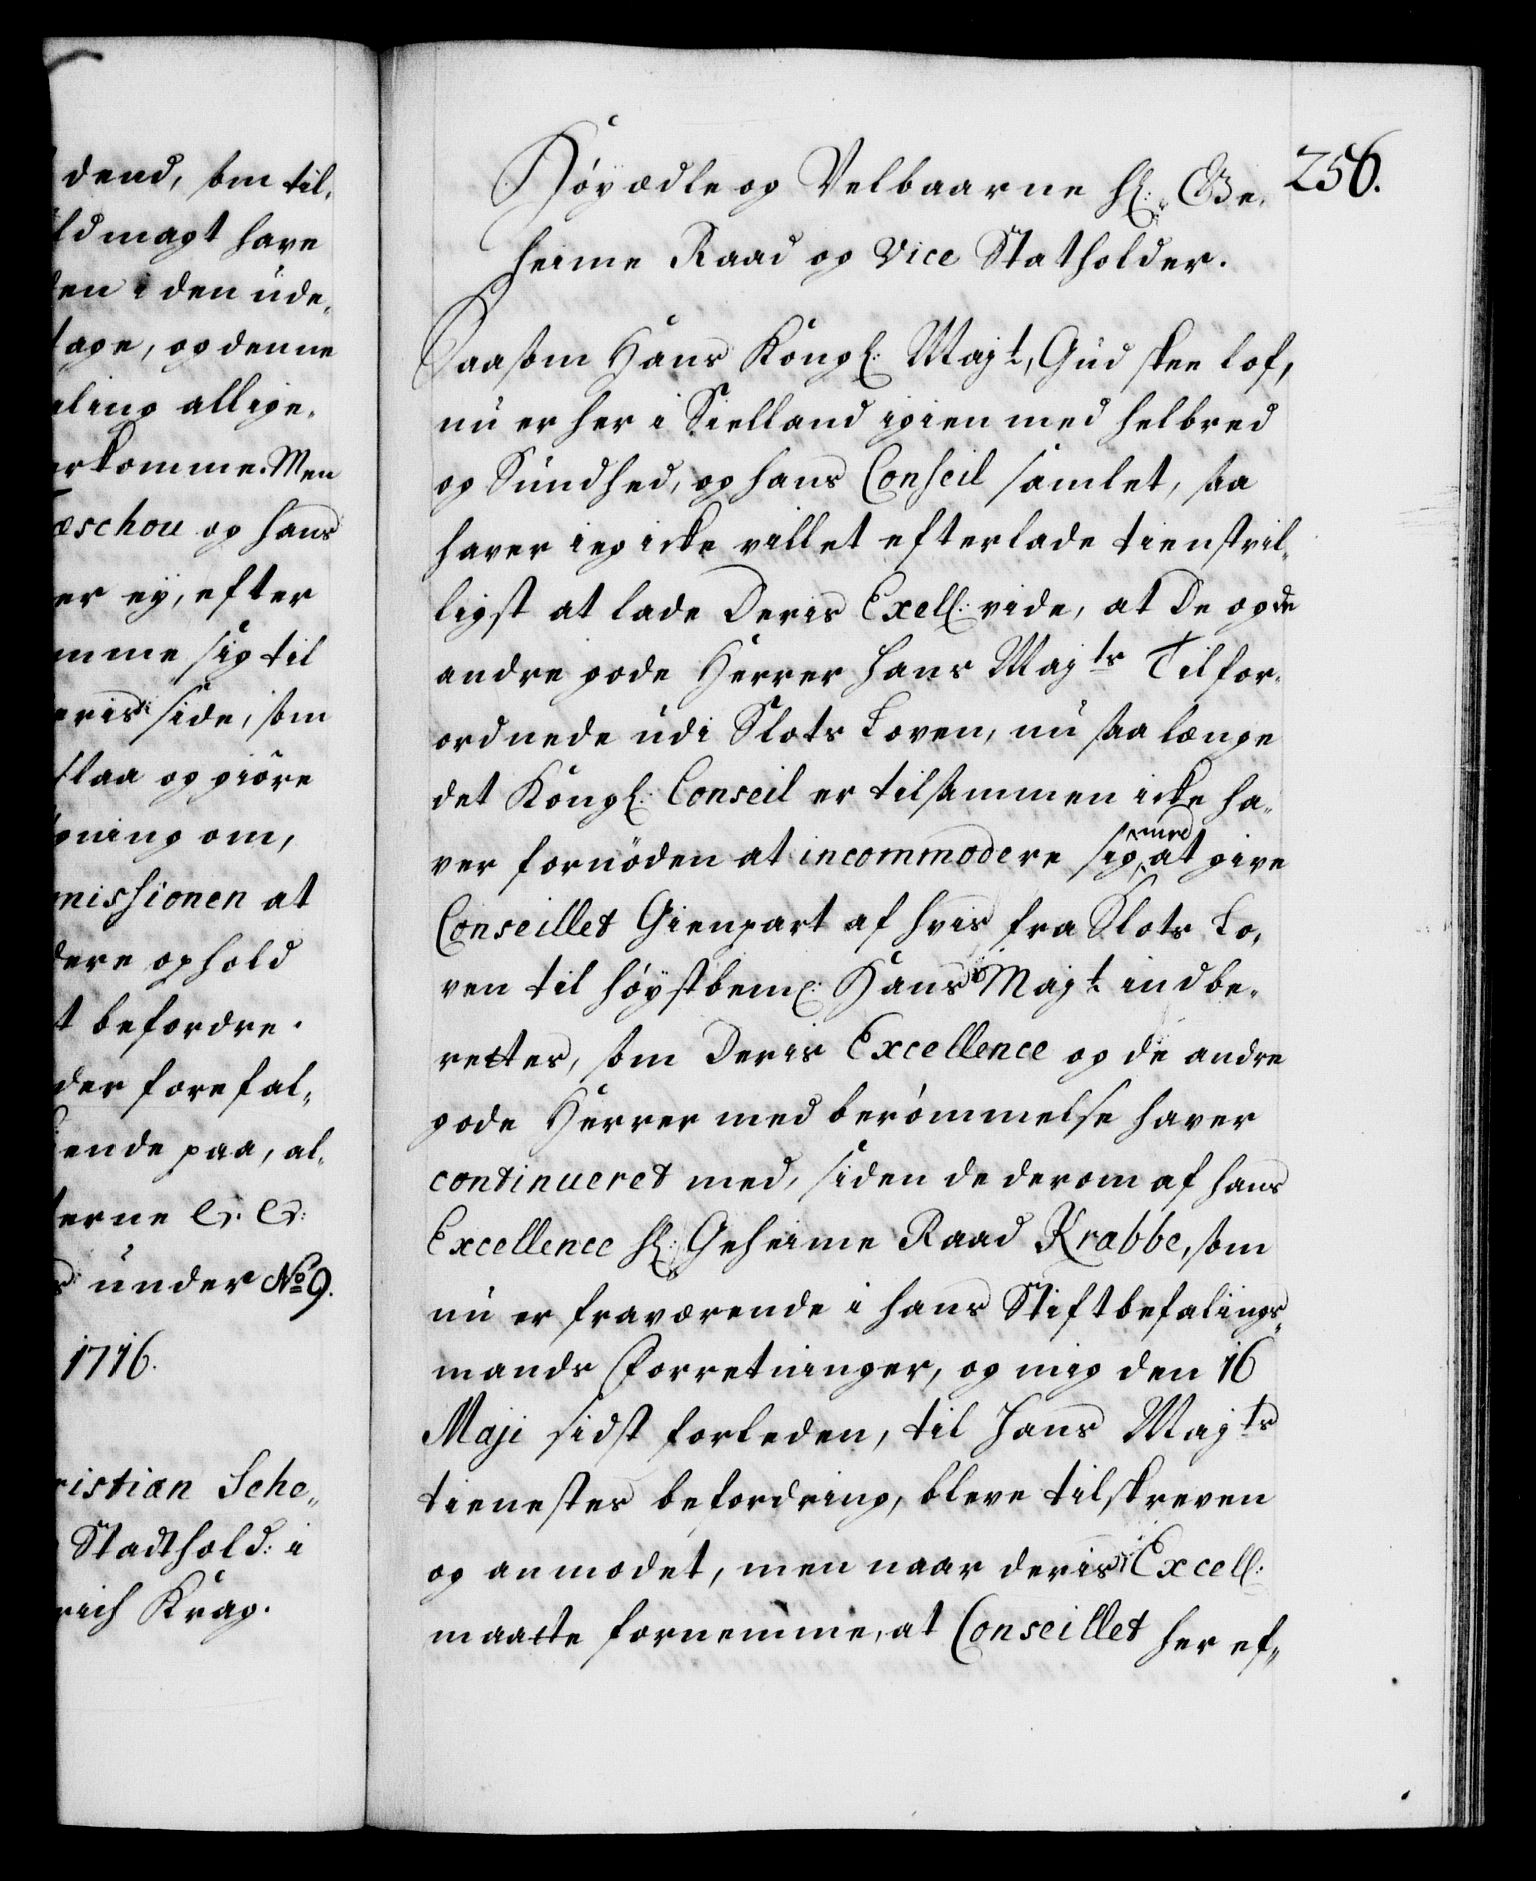 dend, som til-
ldmagt have
den i den ude-
tage, og denne
ling allige-
erkomme. Men
æschou og hans
er ey, efter
mme sig til
eris side, som
slaa og giöre
gning om,
missionen at
dere ophold
t befordre.
der forefal-
ende paa, al-
terne &. &:
s under No 9.
1716.
ristian Sche-
Stadthold: i
rich Krag.
256.
Höyædle og Velbaarne Hr: Ge-
heime Raad og Vice Statholder.
Saasom Hans Kongl: Majt, Gud skee lof,
nu er her i Sielland igien med helbred
og Sundhed, og hans Conseil samlet, saa
haver ieg icke villet efterlade tienstvil-
ligst at lade Deris Exell: vide, at De og de
andre gode Herrer Hans Majts Tilfor-
ordnede udi Slots Loven, nu saa længe
det Kongl: Conseil er tilsammen icke ha-
ver fornöden at incommodere sig med at give
Conseillet Gienpart af hvis fra Slots Lo-
ven til höystbemt: Hans Majt indbe-
rettes, som Deris Excellence og de andre
gode Herrer med berömmelse haver
continueret med, siden de derom af hans
Excellence Hr: Geheime Raad Krabbe, som
nu er fraværende i hans Stiftbefalings-
mands Forretninger, og mig den 16
Maji sidst forleden, til Hans Majts
tienestes befordring, bleve tilskreven
og anmodet, men naar deris Excell:
maatte fornemme, at Conseillet her ef-